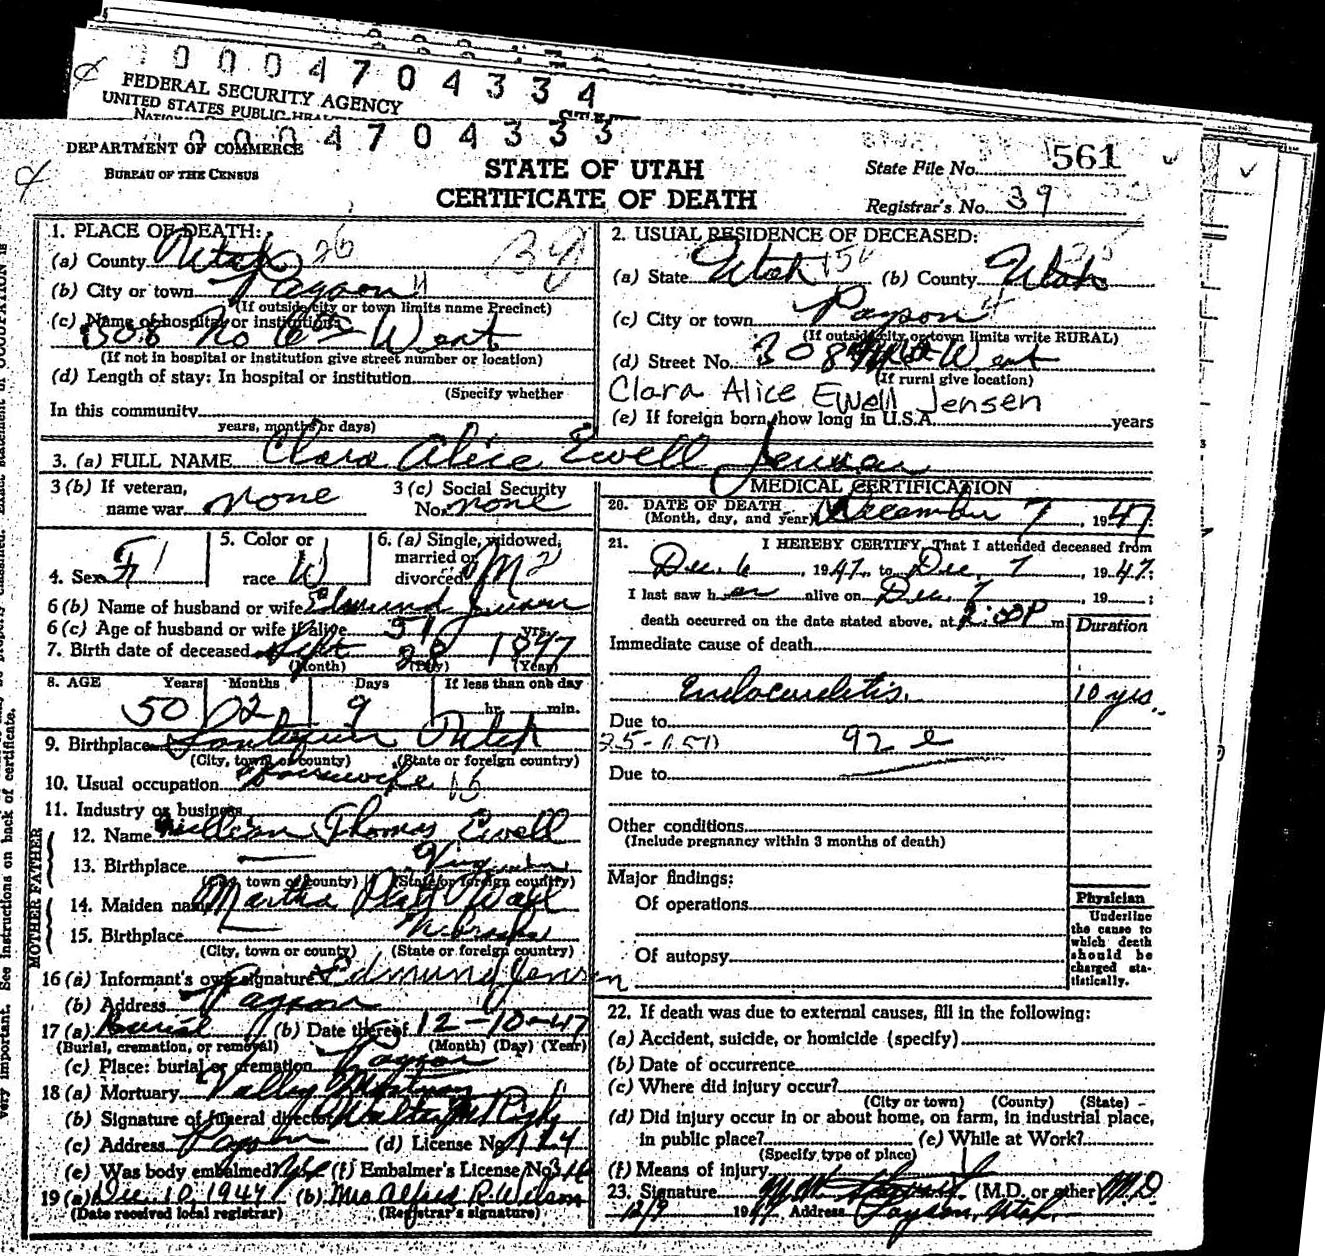 0004704334
FEDERAL SECURITY AGENCY
UNITED STATES PUBLIC
0004704333
DEPARTMENT OF COMMERCE
BUREAU OF THE CENSUS
STATE OF UTAH
CERTIFICATE OF DEATH
State File No. 561
Registrar's No. 39
1. PLACE OF DEATH:
(a) County Utah 26
(b) City or town Payson 4
(If outside city or town limits name Precinct)
(c) Name of hospital or institution:
308 No 6th West
(If not in hospital or institution give street number or location)
(d) Length of stay: In hospital or institution
(Specify whether
In this community
years, months or days)
2. USUAL RESIDENCE OF DECEASED:
(a) State Utah (b) County Utah
(c) City or town Payson 4
(If outside city or town limits write RURAL)
(d) Street No. 308 West
(If rural give location)
Clara Alice Ewell Jensen
(e) If foreign born, how long in U.S.A. years
3. (a) FULL NAME Clara Alice Ewell Jensen
3 (b) If veteran, name war none
3 (c) Social Security No. none
4. Sex F 1
5. Color or race W
6. (a) Single, widowed, married or divorced M 2
6 (b) Name of husband or wife Edmund Jensen
6 (c) Age of husband or wife if alive 51 yrs.
7. Birth date of deceased Sept 28 1897
(Month) (Day) (Year)
8. AGE Years Months Days If less than one day
50 02 9 hr. min.
9. Birthplace Santaquin Utah
(City, town or county) (State or foreign country)
10. Usual occupation Housewife
11. Industry or business
FATHER
12. Name William Thomas Ewell
13. Birthplace Virginia
(City, town or county) (State or foreign country)
MOTHER
14. Maiden name Martha Wall
15. Birthplace Nebraska
(City, town or county) (State or foreign country)
16 (a) Informant's own signature Edmund Jensen
(b) Address Payson
17 (a) Burial (b) Date thereof 12-10-47
(Burial, cremation, or removal) (Month) (Day) (Year)
(c) Place: burial or cremation Payson
18 (a) Mortuary Valley Mortuary
(b) Signature of funeral director
(c) Address Payson (d) License No. 124
(e) Was body embalmed yes (f) Embalmer's License No.
19 (a) Dec 10, 1947 (b) Mrs Alfred R. Wilson
(Date received local registrar) (Registrar's signature)
MEDICAL CERTIFICATION
20. DATE OF DEATH
(Month, day, and year) December 7, 1947.
21. I HEREBY CERTIFY, That I attended deceased from
Dec. 6, 1947, to Dec. 7, 1947;
I last saw her alive on Dec. 7, 19 ;
death occurred on the date stated above, at 2:00P m.
Duration
Immediate cause of death
Endocarditis. 10 yrs.
Due to
92 e
Due to
Other conditions
(Include pregnancy within 3 months of death)
Major findings:
Of operations
Of autopsy
Physician
Underline the cause to which death should be charged statistically.
22. If death was due to external causes, fill in the following:
(a) Accident, suicide, or homicide (specify)
(b) Date of occurrence
(c) Where did injury occur?
(City or town) (County) (State)
(d) Did injury occur in or about home, on farm, in industrial place,
in public place? (e) While at Work?
(Specify type of place)
(f) Means of injury
23. Signature (M.D. or other) M.D.
12/9 1947 Address Payson, Utah.
very important. See instructions on back of certificate.